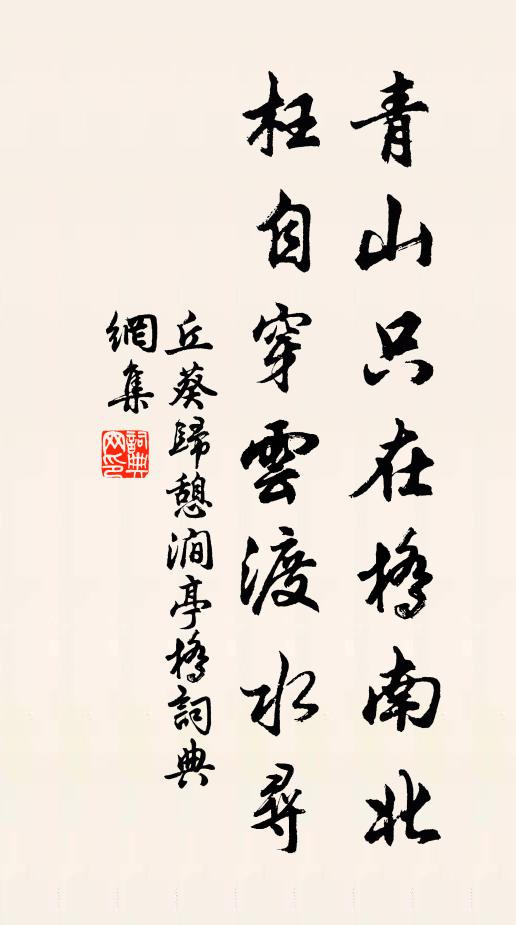 青山只在橋南北
枉自穿雲渡水尋
丘葵歸憩澗亭橋詞典
網集
詞典
网印